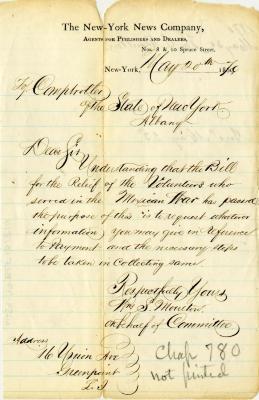 The New-York News Company,
Agents for Publishers and Dealers,
Nos. 8 & 10 Spruce Street.
New-York, May 20th
To Comptroller
Of the State of New York
Albany
Dear Sir
Understanding that the Bill
for the Relief of the Volunteers who
served in the Mexican War has passed
the purpose of this is to request whatever
information you may give in reference
to Payment and the necessary steps
to be taken in Collecting same.
Respectfully Yours
Wm S.
On behalf of Committee
Address
Union Ave
Greenpoint
L. I.
Chap 780
not printed